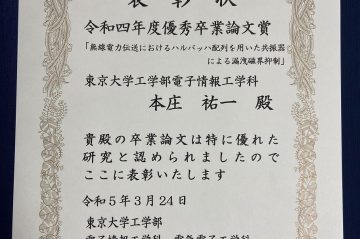 表彰状
令和四年度優秀卒業論文賞
「無線電力伝送におけるハルバッハ配列を用いた共振器
による漏洩磁界抑制」
東京大学工学部電子情報工学科
本庄 祐一 殿
貴殿の卒業論文は特に優れた
研究と認められましたので
ここに表彰いたします
令和5年3月24日
東京大学工学部
電子情報工学科 電気電子工学科